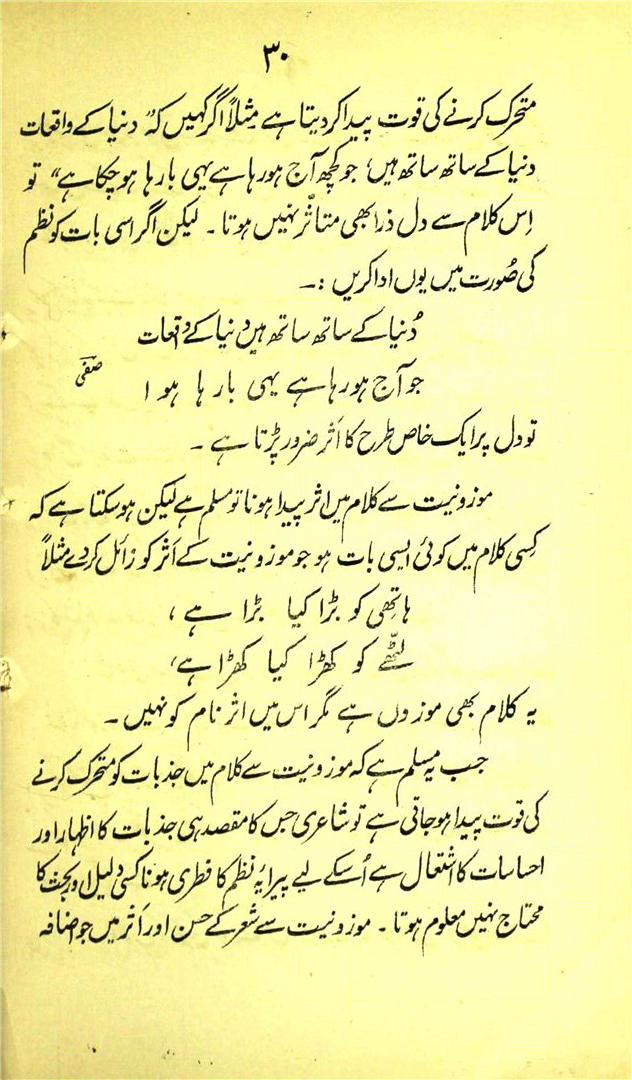 ۳۰
متحرک کرنے کی قوت پیدا کردیتا ہے مثلاً اگر کہیں کہ" دنیا کے واقعات
دنیا کے ساتھ ساتھ ہیں، جو کچھ آج ہو رہا ہے یہی بارہا ہو چکا ہے" تو
اِس کلام سے دل ذرا بھی متاثّر نہیں ہوتا ۔ لیکن اگر اسی بات کو نظم
کی صُورت میں یوں ادا کریں :۔
دُنیا کے ساتھ ساتھ ہیں دنیا کے واقعات
جو آج ہو رہا ہے یہی بارہا ہوا صفی
تو دل پر ایک خاص طرح کا اَثر ضرور پڑتا ہے ۔
موزونیت سے کلام میں اثر پیدا ہونا تو مسلم ہے لیکن ہو سکتا ہے کہ
کِسی کلام میں کوئی ایسی بات ہو جو موزونیت کے اَثر کو زائل کردے مثلاً
ہاتھی کو بڑا کیا بڑا ہے ،
لٹّھے کو کھڑا کیا کھڑا ہے،
یہ کلام بھی موزوں ہے مگر اس میں اثر نام کو نہیں ۔
جب یہ مسلم ہے کہ موزونیت سے کلام میں جذبات کو متحرک کرنے
کی قوت پیدا ہو جاتی ہے تو شاعری جس کا مقصد ہی جذبات کا اظہار اور
احساسات کا اشتعال ہے اُسکے لیے پیرایۂ نظم کا فطری ہونا کسی دلیل اور بحث کا
محتاج نہیں معلوم ہوتا ۔ موزونیت سے شعر کے حسن اور اَثر میں جو اضافہ